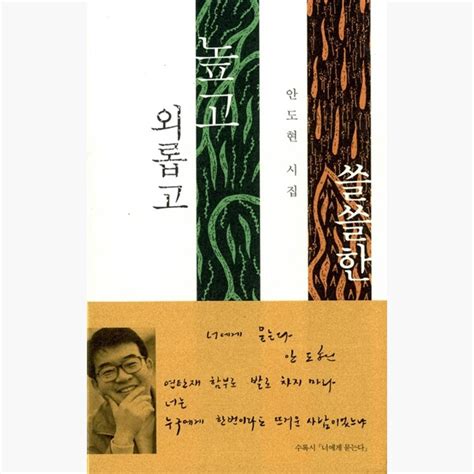 외롭고
높고
쓸쓸한
안도현 시집
너에게 묻는다
안도현
연탄재 함부로 발로 차지 마라
너는
누구에게 한번이라도 뜨거운 사람이었느냐
수록시 「너에게 묻는다」